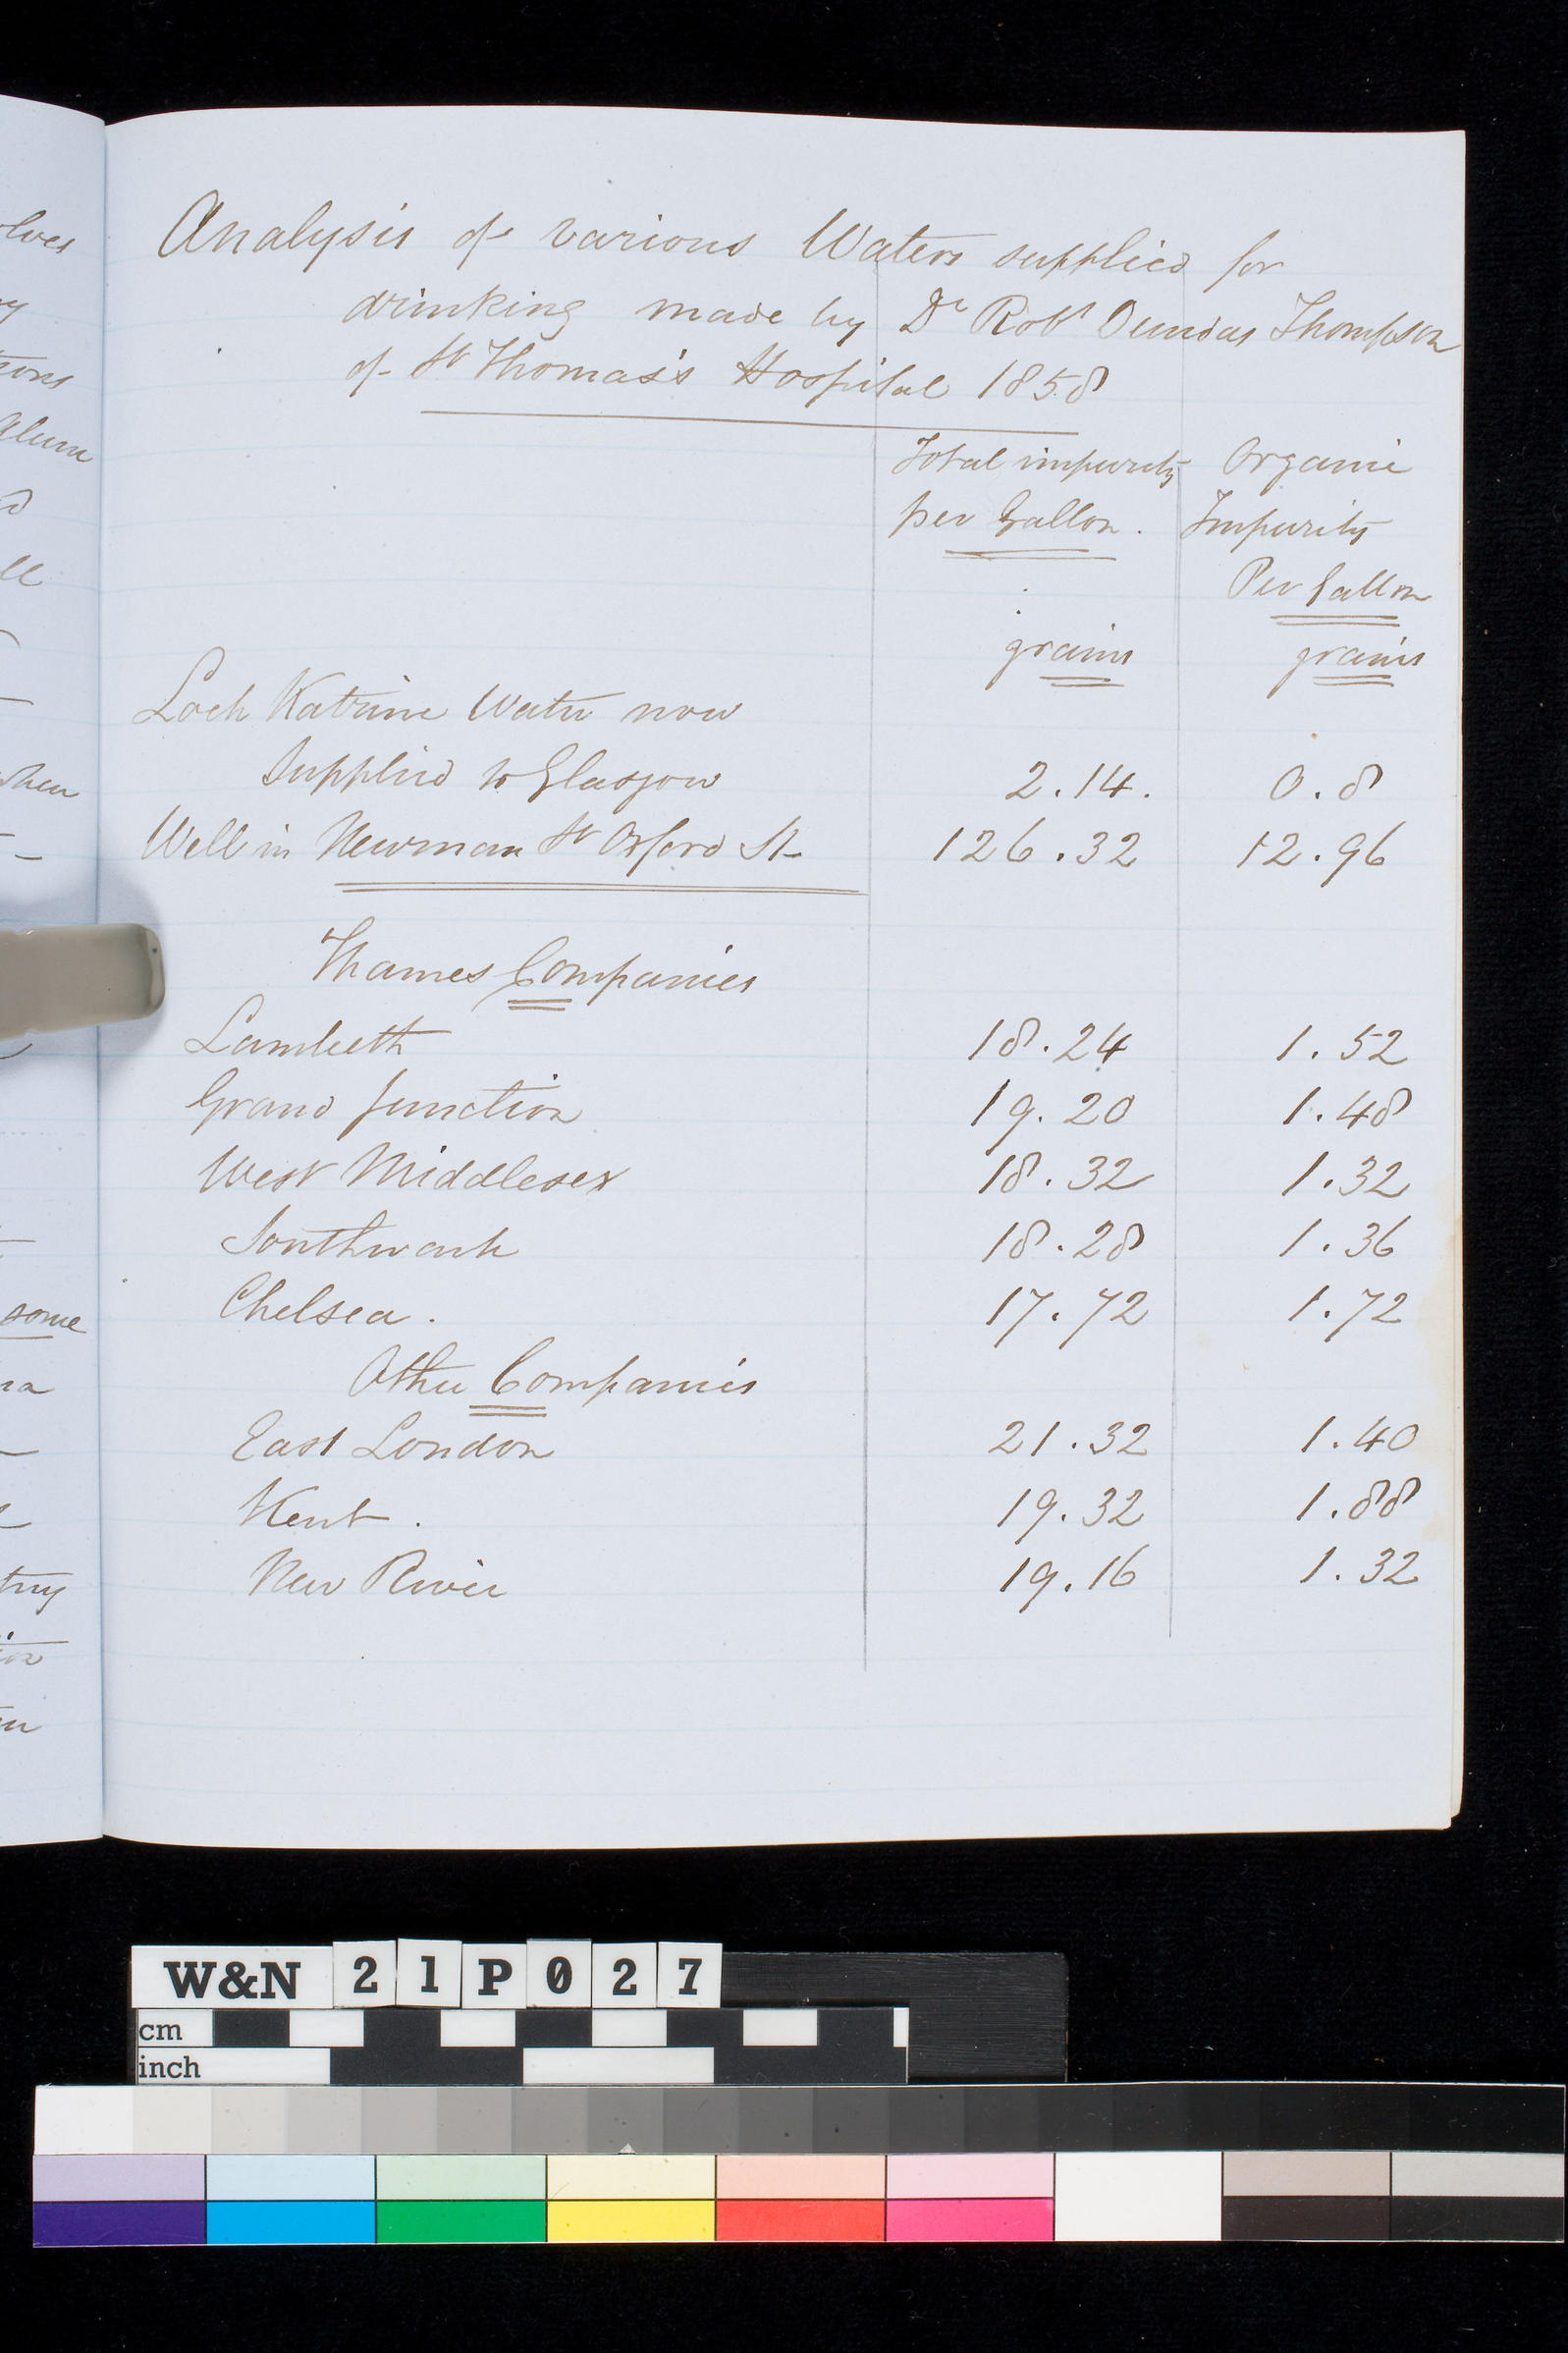 Analysis of various Waters supplied for
drinking made by Dr Robt Dundas Thompson
of St Thomas's Hospital 1858
Total impurity Organic
per Gallon. Impurity
Per Gallon
grains grains
Loch Katrine Water now
Supplied to Glasgow 2.14. 0.8
Well in Newman St Oxford St 126.32 12.96
Thames Companies
Lambeth 18.24 1.52
Grand Junction 19.20 1.48
West Middlesex 18.32 1.32
Southwark 18.28 1.36
Chelsea. 17.72 1.72
Other Companies
East London 21.32 1.40
Kent. 19.32 1.88
New River 19.16 1.32
some
W&N 21P027
cm
inch